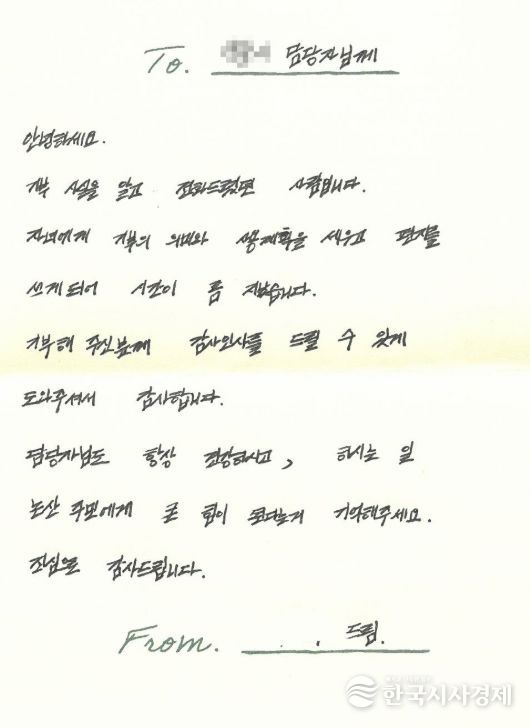 To. 담당자님께
안녕하세요.
기부 사실을 알고 전화드렸던 사람입니다.
자녀에게 기부의 의미와 사용계획을 세우고 편지를
쓰게되어 시간이 좀 지났습니다.
기부해 주신분께 감사인사를 드릴 수 있게
도와주셔서 감사합니다.
담당자님도 항상 건강하시고, 하시는 일
논산 주민에게 큰 힘이 된다는거 기억해주세요.
진심으로 감사드립니다.
From. 드림.
한국시사경제